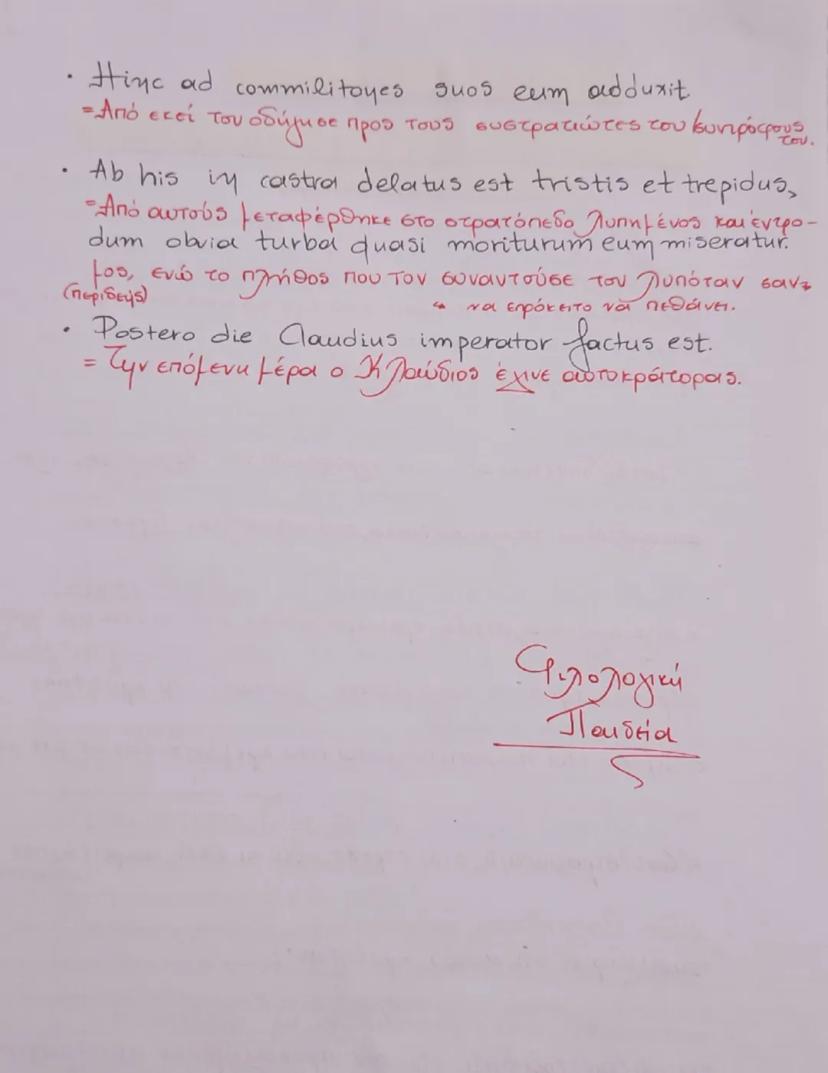 · Hinc ad commilitones suos eum adduxit
= Από εκεί τον οδήγησε προς τους συστρατιώτες του συντρόφους του.
· Ab his in castra delatus est tristis et trepidus,
= Από αυτούς μεταφέρθηκε στο στρατόπεδο λυπημένος και έντρο-
dum obvia turba quasi moriturum eum miseratur.
μος, ενώ το πλήθος που τον συναντούσε τον λυπόταν σαν
(περιδεής) να επρόκειτο να πεθάνει.
· Postero die Claudius imperator factus est.
= Την επόμενη μέρα ο Κλαύδιος έγινε αυτοκράτορας.
Φιλολογική
Παιδεία